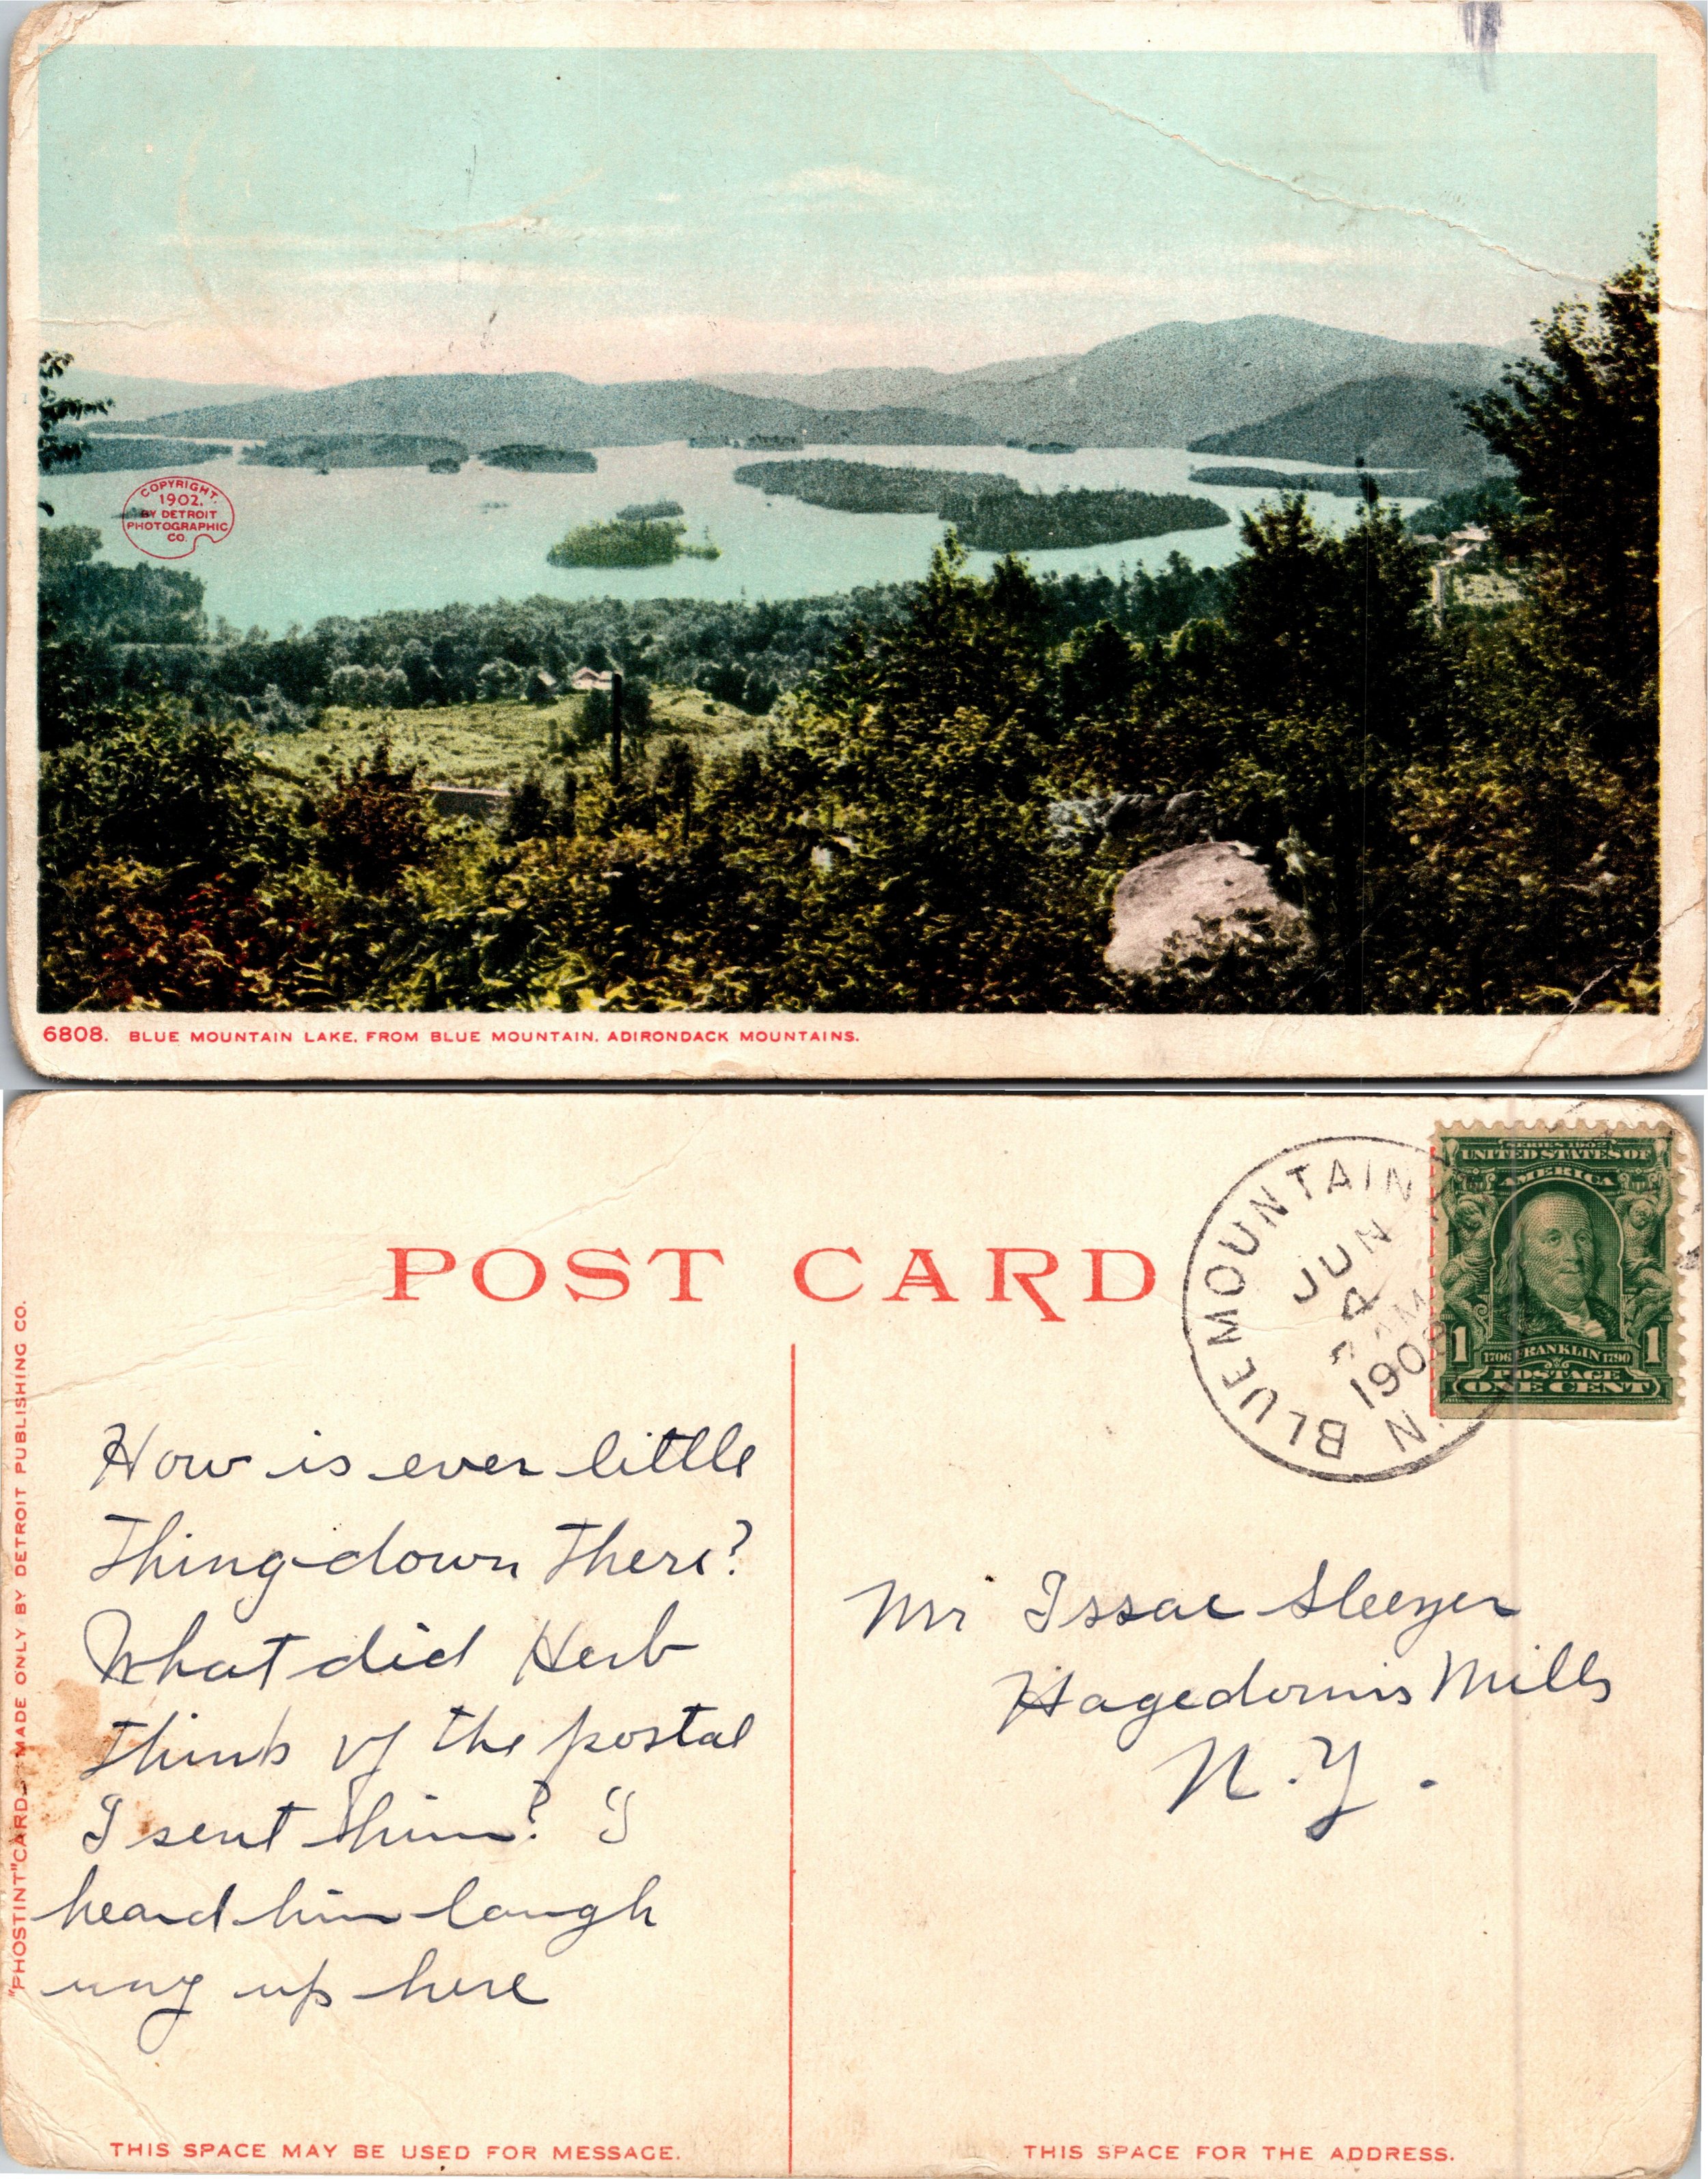 COPYRIGHT.
1902.
BY DETROIT
PHOTOGRAPHIC
CO.
6808. BLUE MOUNTAIN LAKE, FROM BLUE MOUNTAIN, ADIRONDACK MOUNTAINS.
POST CARD
BLUE MOUNTAIN
JUN
4
190
N.
SERIES 1902
UNITED STATES OF
AMERICA
1 1706 FRANKLIN 1790 1
POSTAGE
ONE CENT
"PHOSTINT" CARD MADE ONLY BY DETROIT PUBLISHING CO.
How is ever little
thing down there?
What did Herb
think of the postal
I sent him? I
heard him laugh
way up here
Mr Issac Sleezer
Hagedorns Mills
N.Y.
THIS SPACE MAY BE USED FOR MESSAGE.
THIS SPACE FOR THE ADDRESS.